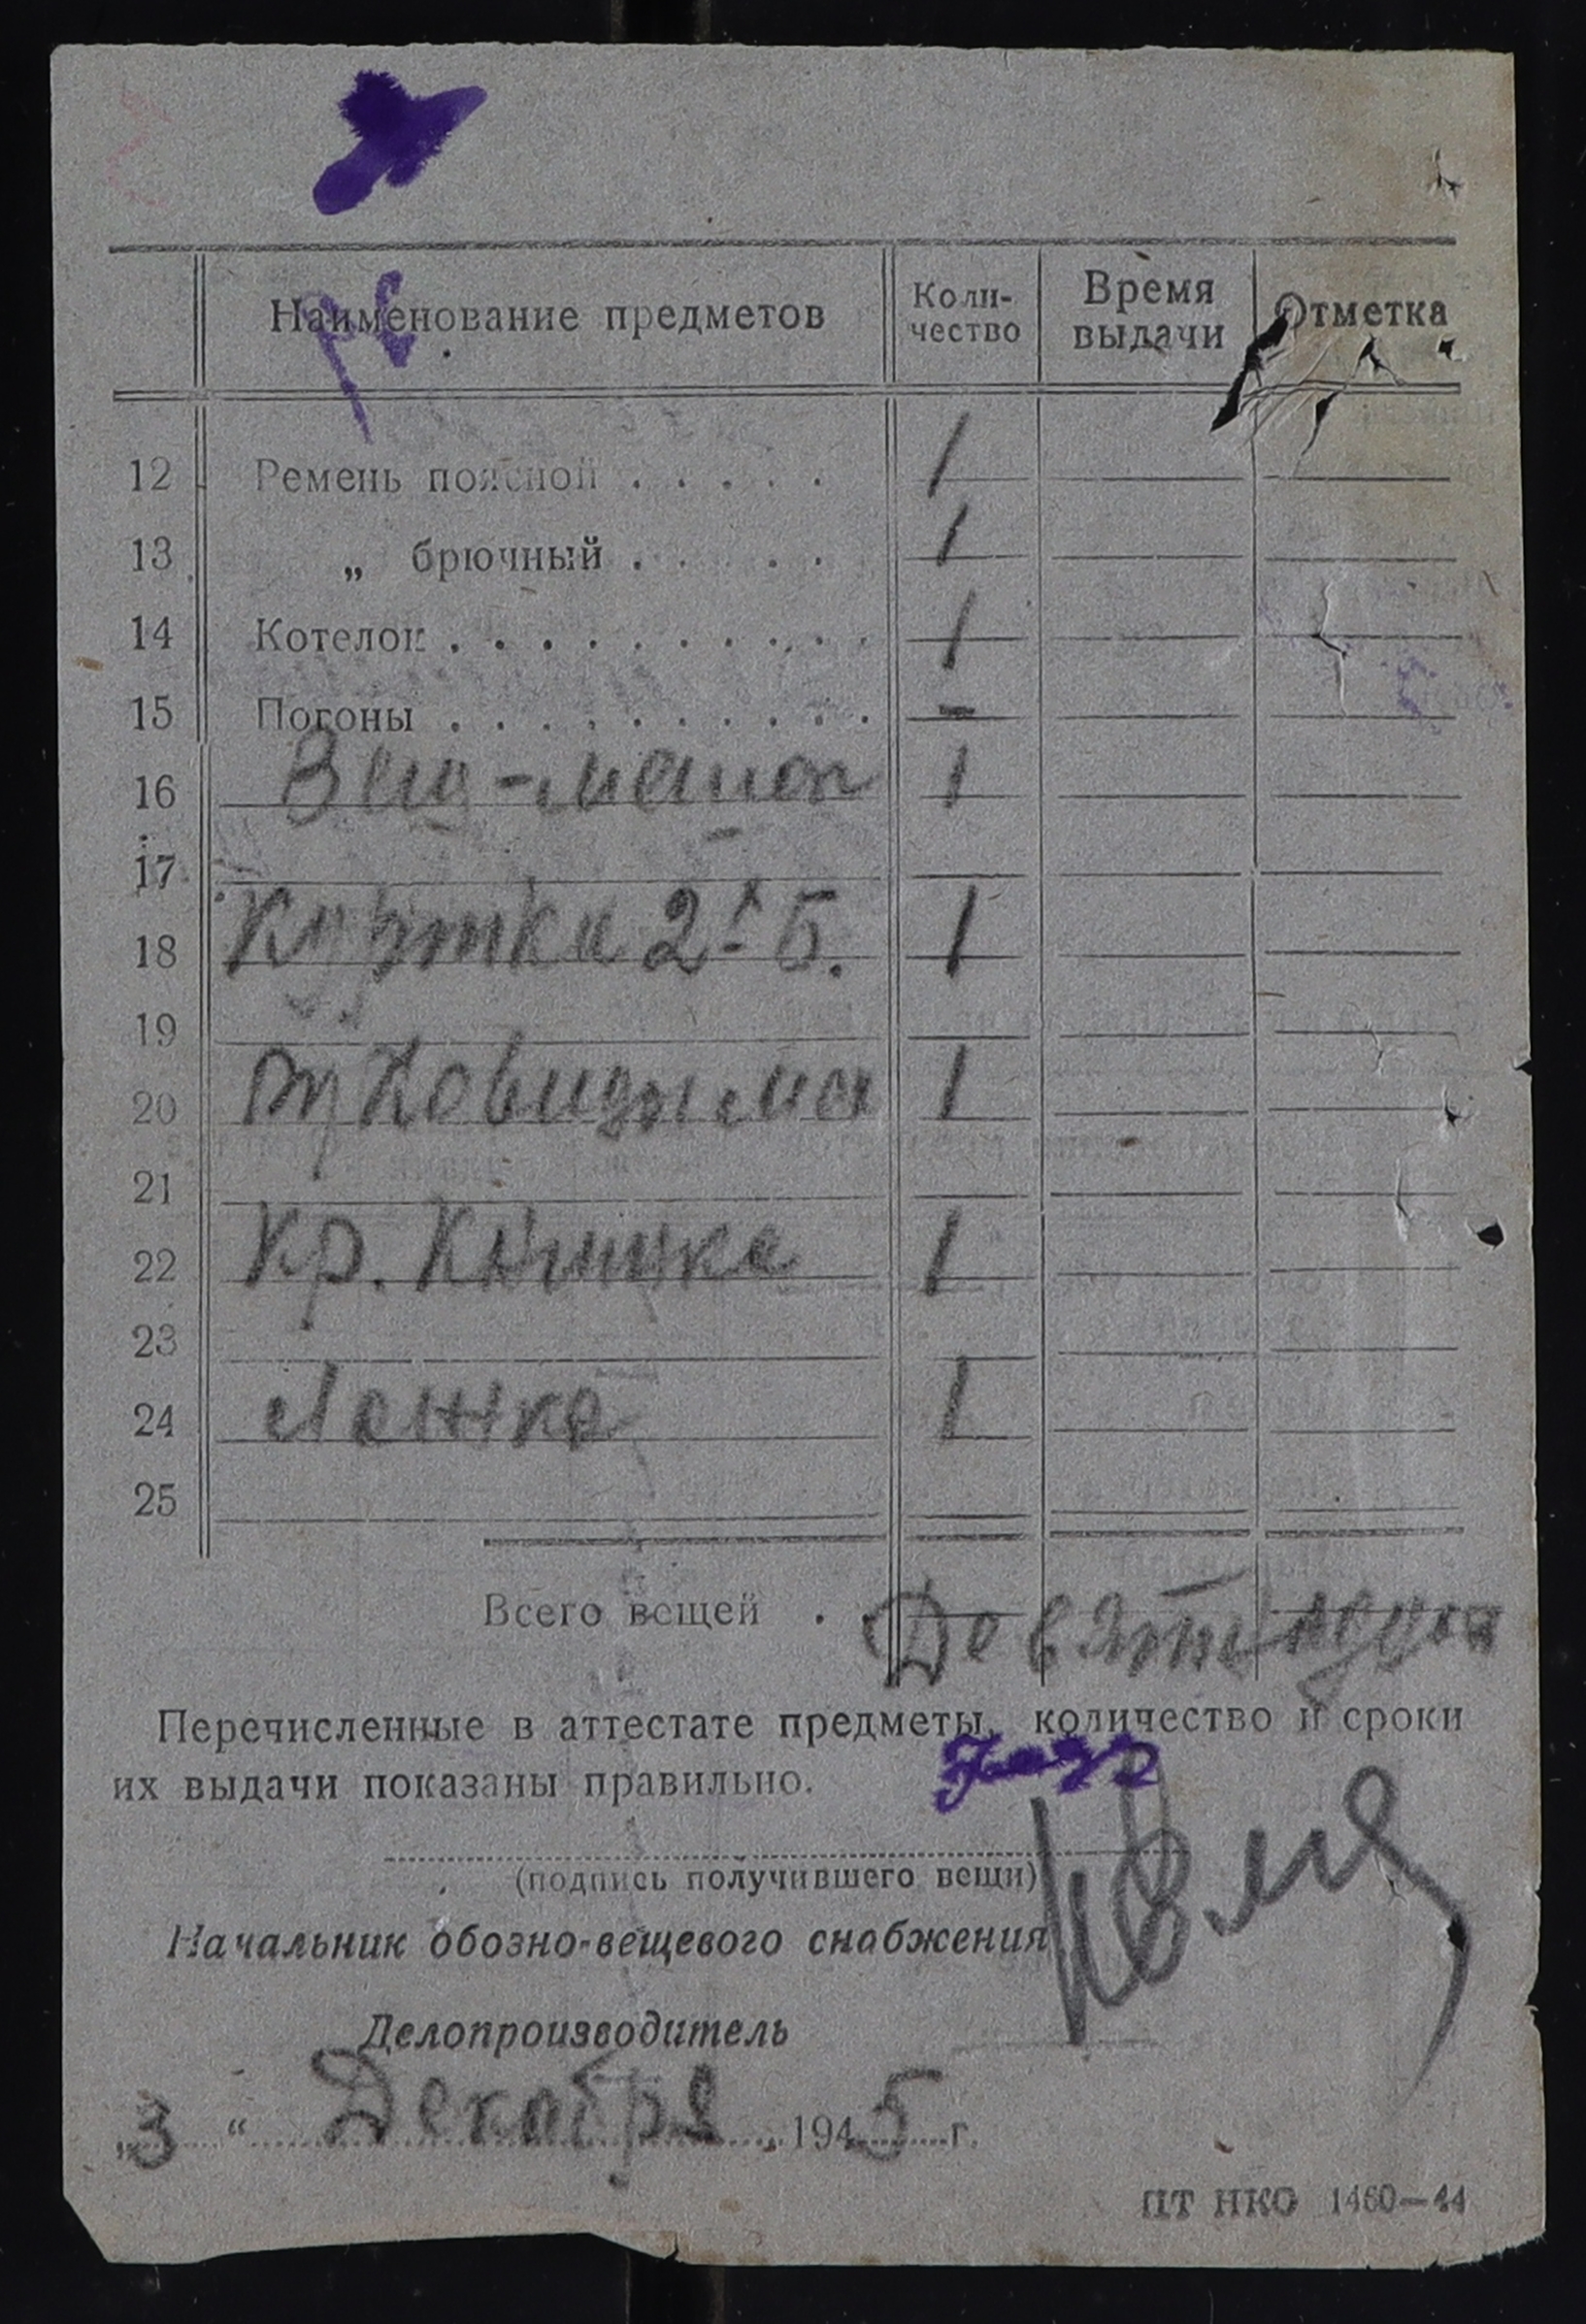 Наименование предметов Коли-чество Время выдачи Отметка
12 Ремень поясной . . . . . 1
13 „ брючный . . . . . 1
14 Котелок . . . . . . . . . . 1
15 Погоны . . . . . . . . . . -
16 Вещ-мешок 1
17
18 Куртка 2х Б. 1
19
20 1
21
22 Кр. Книжка 1
23
24 Ложка 1
25
Всего вещей . Девять
Перечисленные в аттестате предметы, количество и сроки
их выдачи показаны правильно.
(подпись получившего вещи)
Начальник обозно-вещевого снабжения
Делопроизводитель
„3“ Декабря 1945 г.
ПТ НКО 1460—44